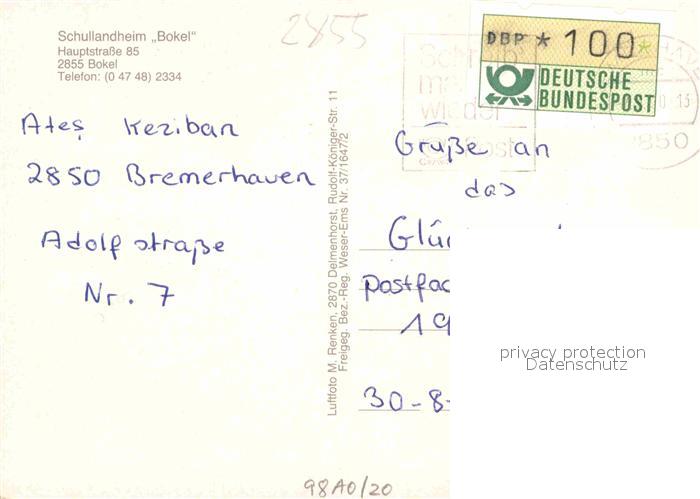 Schullandheim „Bokel"
Hauptstraße 85
2855 Bokel
Telefon: (0 47 48) 2334
2855
DBP * 100*
DEUTSCHE
BUNDESPOST
wieder
Post
2850
Ateş Keziban
2850 Bremerhaven
Adolfstraße
Nr. 7
Luftfoto M. Renken, 2870 Delmenhorst, Rudolf-Königer-Str. 11
Freigeg. Bez.-Reg. Weser-Ems Nr. 37/1647/2
Grüße an
das
Glü
Postfac
19
30-8-
privacy protection
Datenschutz
98A0/20